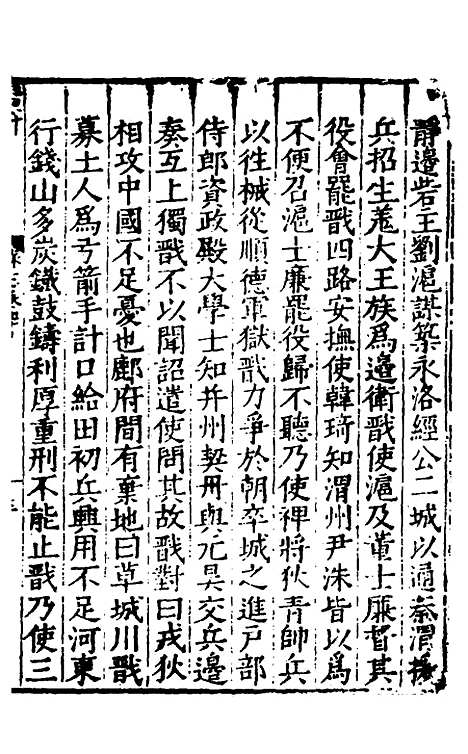 靜邊砦主劉滬謀築永洛經公二城以通秦渭援
兵招生羗大王族爲邉衛戩使滬及董士廉督其
役會罷戩四路安撫使韓琦知渭州尹洙皆以爲
不便召滬士廉罷役歸不聽乃使裨將狄青帥兵
以往械從順德軍獄戩力爭於朝卒城之進戸部
侍郎資政殿大學士知并州契丹與元昊交兵邊
奏互上獨戩不以聞詔遣使問其故戩對曰戎狄
相攻中國不足憂也鄜府間有棄地曰草城川戩
募土人爲弓箭手計口給田初兵興用不足河東
行錢山多炭鐵鼓鑄利厚重刑不能止戩乃使三